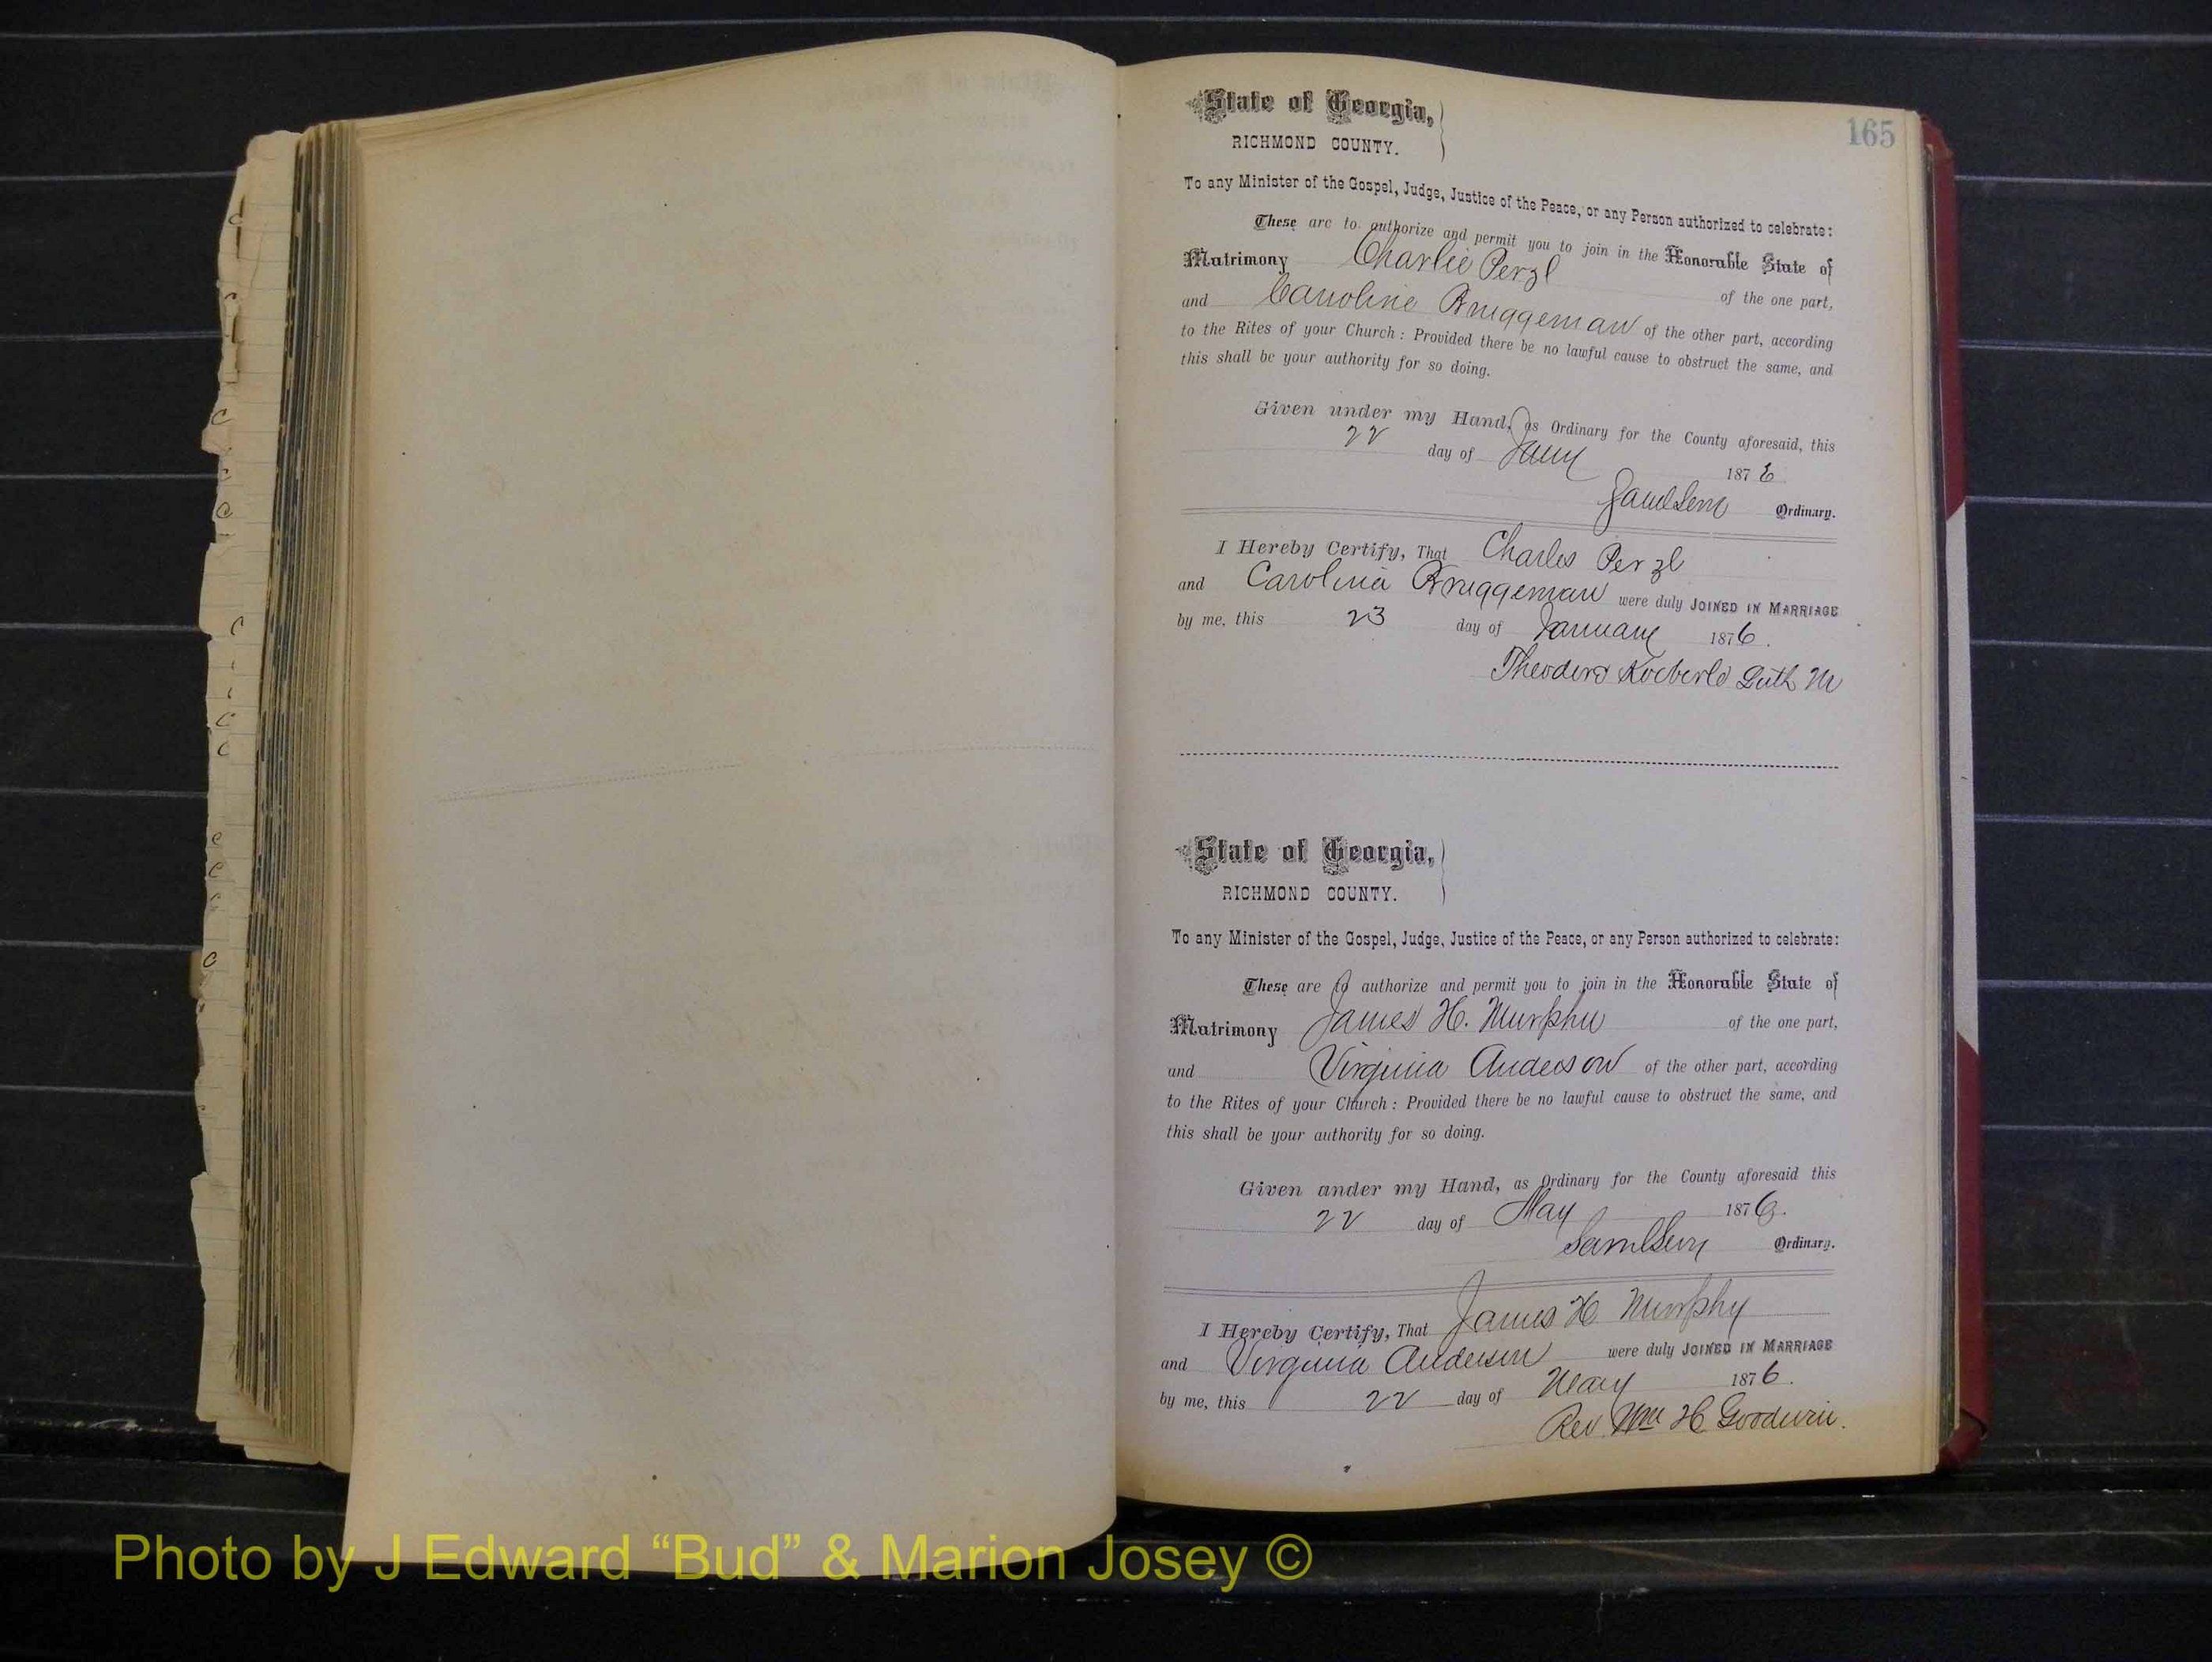 165
State of Georgia,
RICHMOND COUNTY.
To any Minister of the Gospel, Judge, Justice of the Peace, or any Person authorized to celebrate:
These are to authorize and permit you to join in the Honorable State of
Matrimony Charlie Perzl of the one part,
and Caroline Bruggeman of the other part, according
to the Rites of your Church: Provided there be no lawful cause to obstruct the same, and
this shall be your authority for so doing.
Given under my Hand, as Ordinary for the County aforesaid, this
22 day of Jany 1876
Saml Levy Ordinary.
I Hereby Certify, That Charles Perzl
and Carolina Bruggeman were duly JOINED IN MARRIAGE
by me, this 23 day of January 1876.
Theodore Koeberle Luth M
State of Georgia,
RICHMOND COUNTY.
To any Minister of the Gospel, Judge, Justice of the Peace, or any Person authorized to celebrate:
These are to authorize and permit you to join in the Honorable State of
Matrimony James H. Murphy of the one part,
and Virginia Anderson of the other part, according
to the Rites of your Church: Provided there be no lawful cause to obstruct the same, and
this shall be your authority for so doing.
Given under my Hand, as Ordinary for the County aforesaid this
22 day of May 1876.
Saml Levy Ordinary.
I Hereby Certify, That James H Murphy
and Virginia Anderson were duly JOINED IN MARRIAGE
by me, this 22 day of May 1876.
Rev. Wm H Goodwin.
Photo by J Edward “Bud” & Marion Josey ©